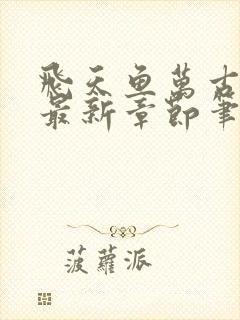 飛天魚萬古
最新章節筆
菠蘿派